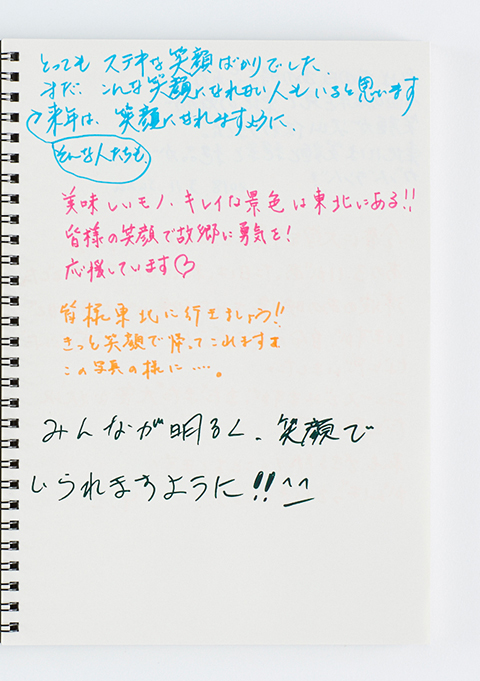 とってもステキな笑顔ばかりでした。
まだ、こんな笑顔になれない人もいると思います
来年は、笑顔になれますように、
そんな人たちも、
美味しいモノ、キレイな景色は東北にある!!
皆様の笑顔で故郷に勇気を!
応援しています♡
皆様東北に行きましょう!!
きっと笑顔で帰ってこれますよ
この写真の様に‥‥。
みんなが明るく、笑顔で
いられますように!!^^